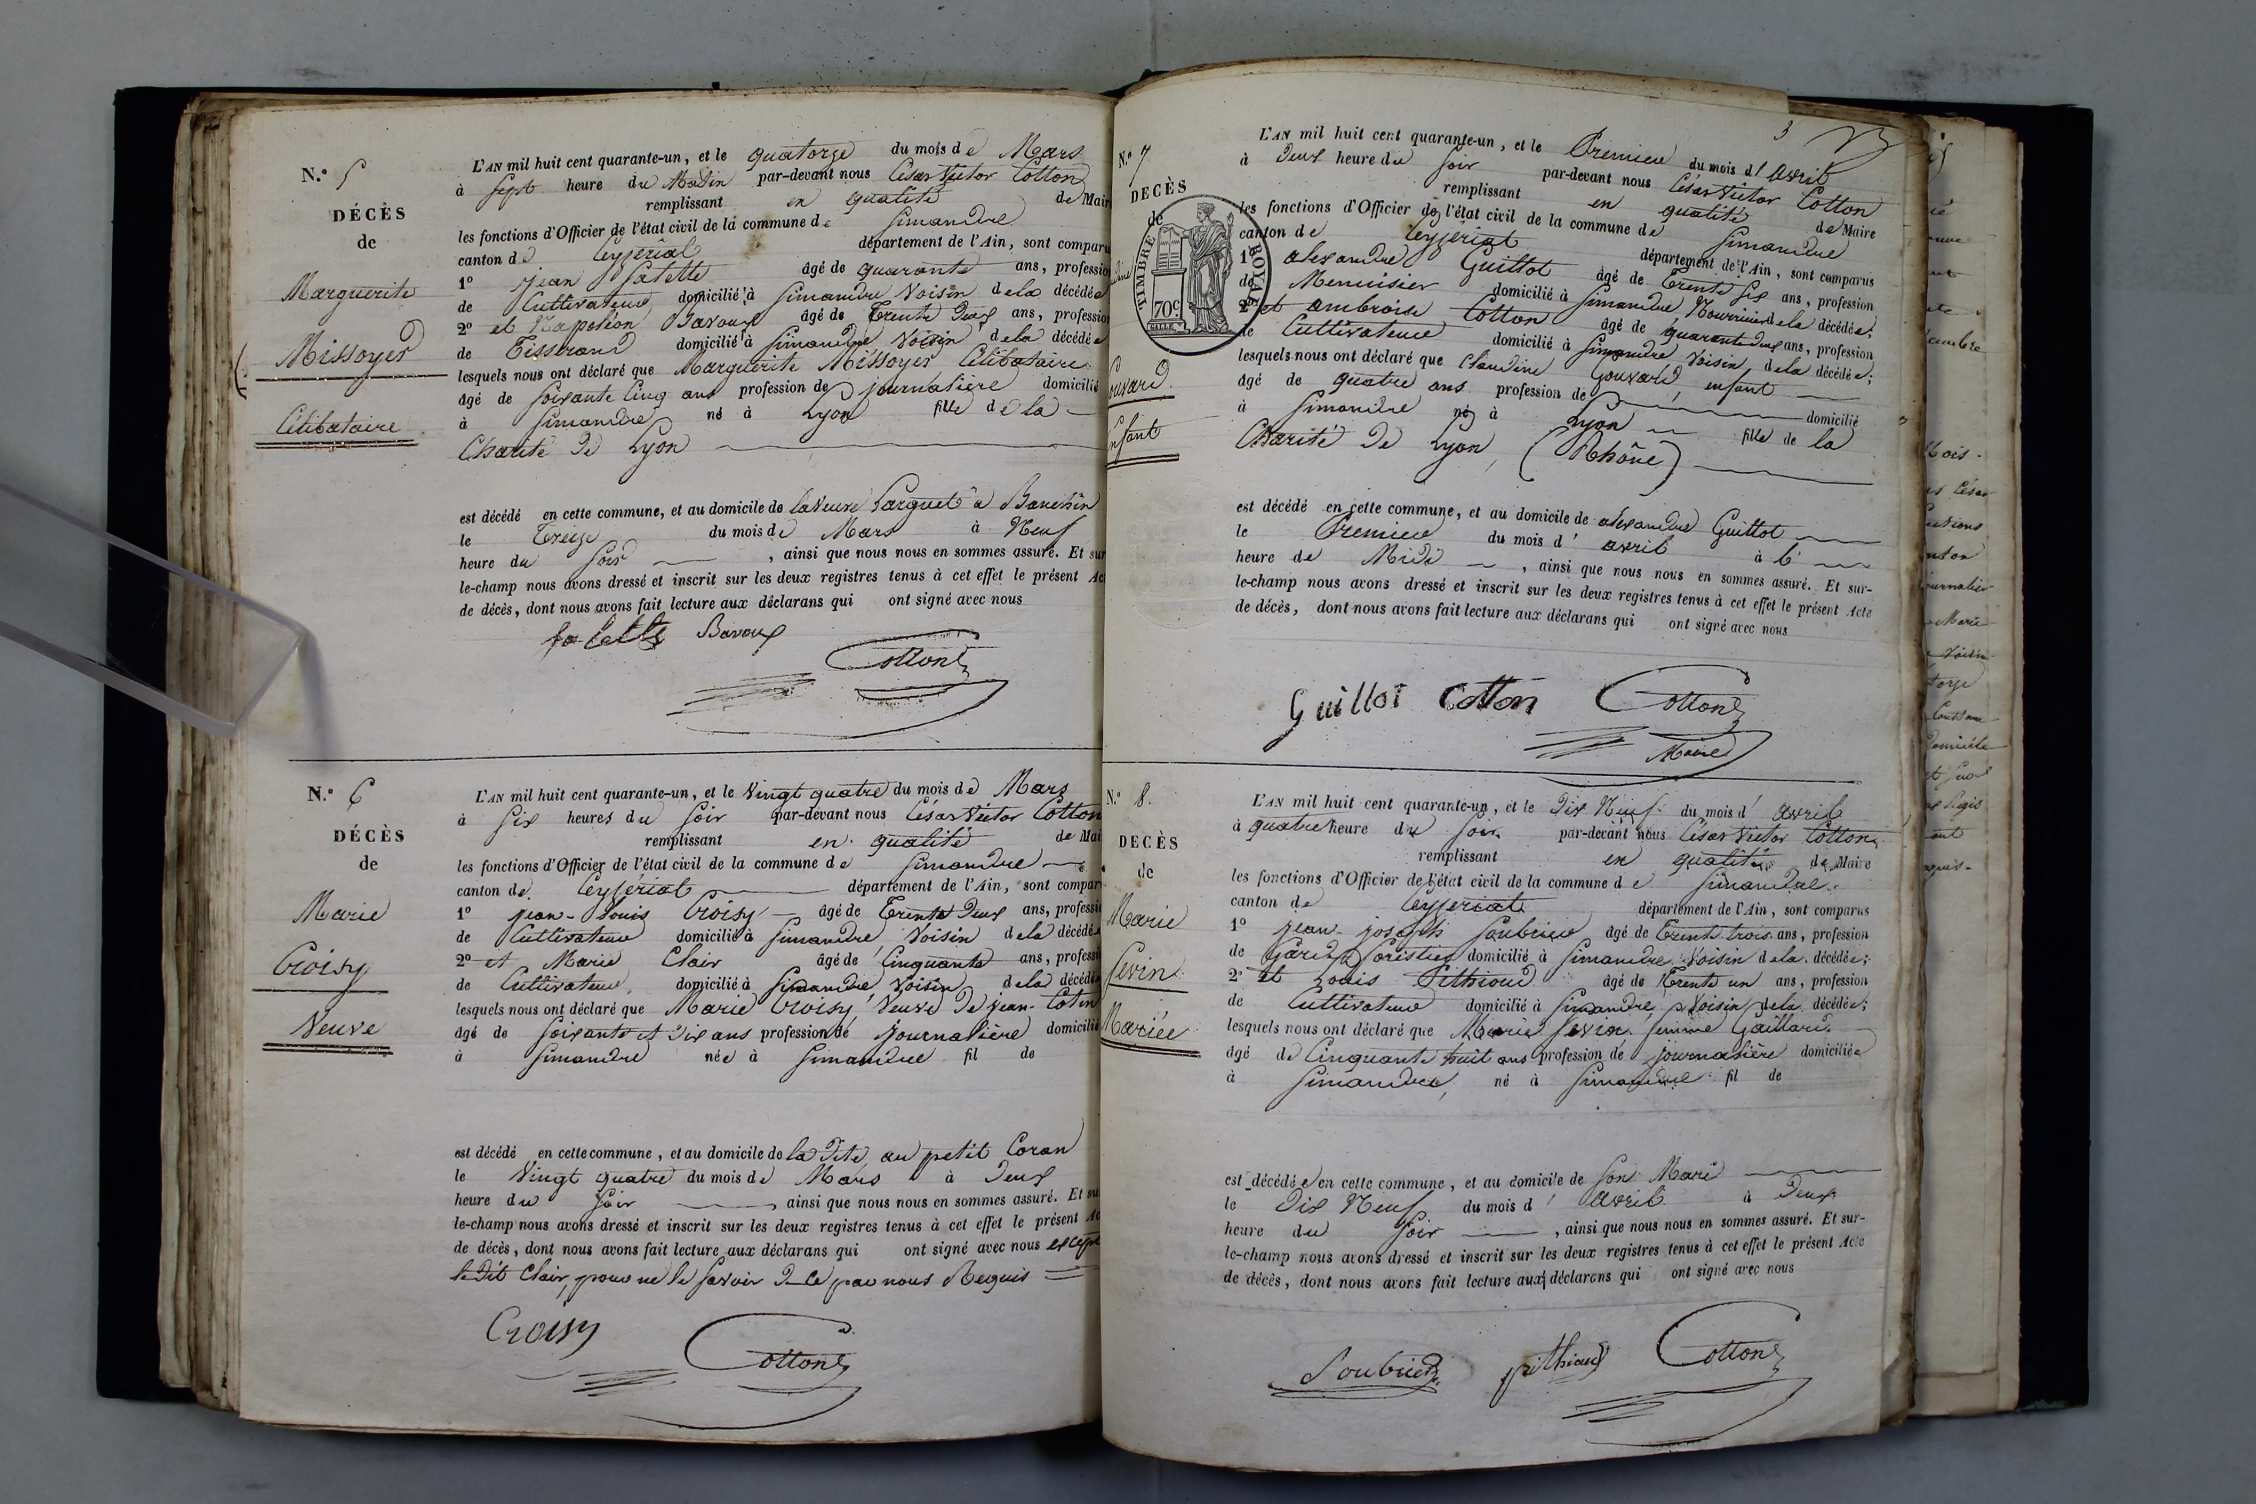 N.º 5
DÉCÈS
de
Marguerite
Missoyer
Célibataire
L'AN mil huit cent quarante-un, et le quatorze du mois de Mars
à sept heure du Matin par-devant nous César Victor Cotton
remplissant en qualité de Mair
les fonctions d'Officier de l'état civil de la commune de Simandre
canton de Ceyzériat département de l'Ain, sont comparu
1º jean âgé de quarante ans, profession
de Cultivateur domicilié à Simandre Voisin de la décédée
2º et Napoléon Bavoux âgé de Trente Deux ans, profession
de Tisserand domicilié à Simandre Voisin de la décédée
lesquels nous ont déclaré que Marguerite Missoyer Célibataire
âgé de soixante Cinq ans profession de journalière domicilié
à Simandre né à Lyon fille de la
Charité de Lyon
est décédé en cette commune, et au domicile de la Veuve à
le Treize du mois de Mars à Neuf
heure du Soir, ainsi que nous nous en sommes assuré. Et sur
le-champ nous avons dressé et inscrit sur les deux registres tenus à cet effet le présent Ac
de décès, dont nous avons fait lecture aux déclarans qui ont signé avec nous
Bavoux
Cotton
N.º 6
DÉCÈS
de
Marie
Croisy
Veuve
L'AN mil huit cent quarante-un, et le Vingt quatre du mois de Mars
à Six heures du Soir par-devant nous César Victor Cotton
remplissant en qualité de Mai
les fonctions d'Officier de l'état civil de la commune de Simandre
canton de Ceyzériat département de l'Ain, sont compar
1º jean-Louis Croisy âgé de Trente Deux ans, professi
de Cultivateur domicilié à Simandre Voisin de la décédée
2º et Marie Clair âgé de Cinquante ans, professi
de Cultivateur domicilié à Simandre voisin de la décédée
lesquels nous ont déclaré que Marie Croisy, Veuve de jean Cotin
âgé de Soixante et Dix ans profession de journalière domicilié
à Simandre née à Simandre fil de
est décédé en cette commune, et au domicile de la dite au petit Coran
le Vingt quatre du mois de Mars à Deux
heure du Soir, ainsi que nous nous en sommes assuré. Et su
le-champ nous avons dressé et inscrit sur les deux registres tenus à cet effet le présent Ac
de décès, dont nous avons fait lecture aux déclarans qui ont signé avec nous except
le dit Clair, pour ne le savoir De ce par nous Requis
Croisy
Cotton
3
N.º 7
DÉCÈS
de
ouvard
nfant
TIMBRE ROYAL
70 C.
L'AN mil huit cent quarante-un, et le Premier du mois d'avril
à Deux heure du Soir par-devant nous César Victor Cotton
remplissant en qualité de Maire
les fonctions d'Officier de l'état civil de la commune de Simandre
canton de Ceyzériat département de l'Ain, sont comparus
1º alexandre Guillot âgé de Trente Six ans, profession
de Menuisier domicilié à Simandre Nourricier de la décédée;
2º et ambroise Cotton âgé de quarante deux ans, profession
de Cultivateur domicilié à Simandre Voisin de la décédée;
lesquels nous ont déclaré que Claudine Gouvard, enfant
âgé de quatre ans profession de domicilié
à Simandre né à Lyon fille de la
Charité de Lyon, (Rhône)
est décédé en cette commune, et au domicile de alexandre Guillot
le Premier du mois d'avril à
heure de Midi, ainsi que nous nous en sommes assuré. Et sur-
le-champ nous avons dressé et inscrit sur les deux registres tenus à cet effet le présent Acte
de décès, dont nous avons fait lecture aux déclarans qui ont signé avec nous
Guillot Cotton Cotton
Maire
N.º 8.
DÉCÈS
de
Marie
Sevin
Mariée
L'AN mil huit cent quarante-un, et le Dix Neuf du mois d'avril
à quatre heure du Soir par-devant nous César Victor Cotton
remplissant en qualité de Maire
les fonctions d'Officier de l'état civil de la commune de Simandre
canton de Ceyzériat département de l'Ain, sont comparus
1º jean-joseph Soubrier âgé de Trente trois ans, profession
de Garde forestier domicilié à Simandre Voisin de la décédée;
2º et Louis Pithioud âgé de Trente un ans, profession
de Cultivateur domicilié à Simandre, Voisin de la décédée;
lesquels nous ont déclaré que Marie Sevin femme Gaillard
âgé de Cinquante huit ans profession de journalière domiciliée
à Simandre, né à Simandre fil de
est décédée en cette commune, et au domicile de Son Mari
le Dix Neuf du mois d'avril à Deux
heure du Soir, ainsi que nous nous en sommes assuré. Et sur-
le-champ nous avons dressé et inscrit sur les deux registres tenus à cet effet le présent Acte
de décès, dont nous avons fait lecture aux déclarans qui ont signé avec nous
Soubrier pithioud Cotton